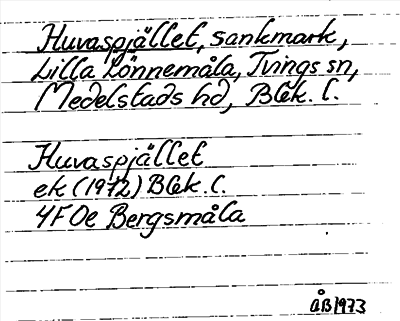 Huvaspjället, sankmark,
Lilla Lönnemåla, Tvings sn,
Medelstads hd, Blek. l.
Huvaspjället
ek (1972) Blek. l.
4F 0e Bergsmåla
ÅB 1973